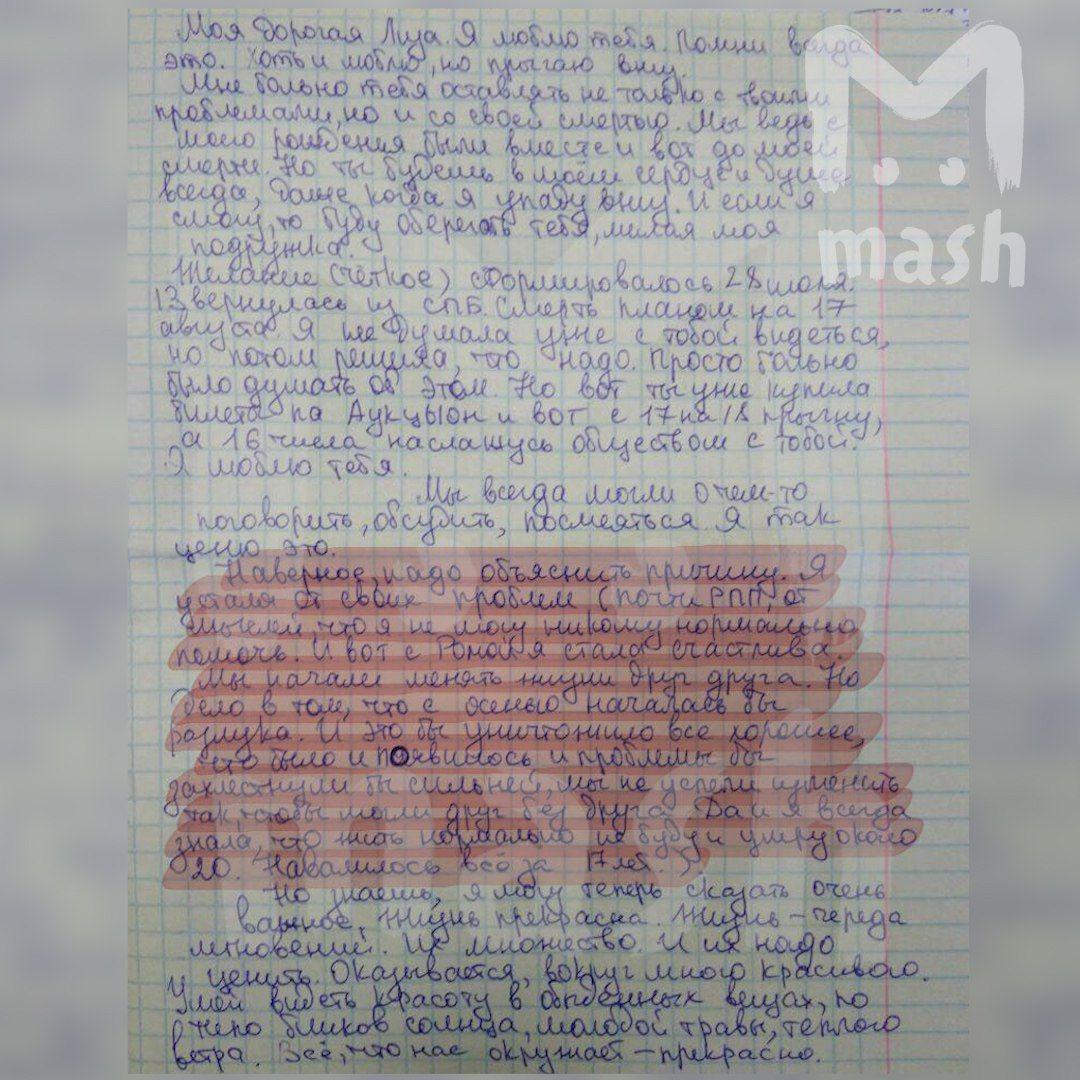 Моя дорогая Лиза. Я люблю тебя. Помни всегда
это. Хоть и люблю, но прыгаю вниз.
Мне больно тебя оставлять не только с твоими
проблемами, но и со своей смертью. Мы ведь с
моего рождения были вместе и вот до моей
смерти. Но ты будешь в моём сердце и душе
всегда, даже когда я упаду вниз. И если я
смогу, то буду оберегать тебя, милая моя
подружка.
Желание (чёткое) сформировалось 28 июля.
13 вернулась из СПБ. Смерть планом на 17
августа. Я не думала уже с тобой видеться,
но потом решила, что надо. Просто больно
было думать об этом. Но вот ты уже купила
билеты на Аукцыон и вот с 17 на 18 прыгну,
а 16 числа наслажусь обществом с тобой.
Я люблю тебя.
Мы всегда могли о чем-то
поговорить, обсудить, посмеяться. Я так
ценю это.
Наверное, надо объяснить причину. Я
устала от своих проблем (почти РПП, от
мыслей что я не могу никому нормально
помочь. И вот с Ромой я стала счастлива.
Мы начали менять жизни друг друга. Но
дело в том, что с осенью началась бы
разлука. И это бы уничтожило все хорошее,
что было и появилось, и проблемы бы
захлестнули бы сильней, мы не успели изменить
так чтобы могли друг без друга. Да и я всегда
знала, что жить нормально не буду и умру около
20. Навалилось всё за 17 лет.
Но знаешь, я могу теперь сказать очень
важное, жизнь прекрасна. Жизнь – череда
мгновений. Их множество. И их надо
ценить. Оказывается, вокруг много красивого.
Умей видеть красоту в обыденных вещах, по
типо бликов солнца, молодой травы, теплого
ветра. Всё, что нас окружает – прекрасно.
mash